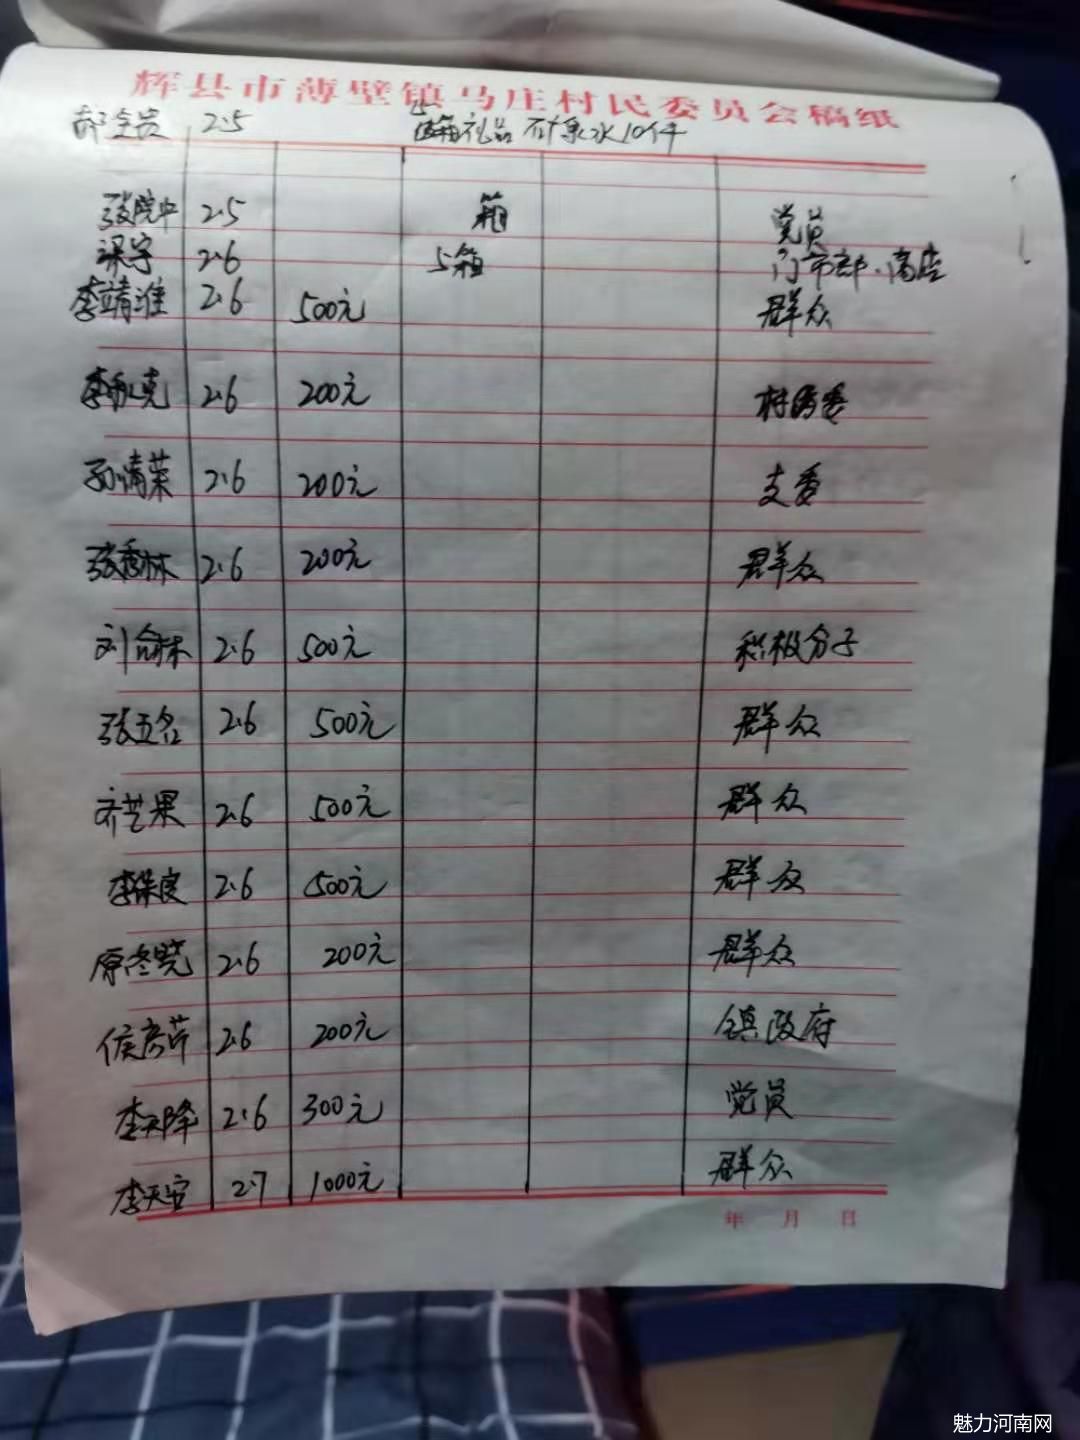 辉县市薄壁镇马庄村民委员会稿纸
2.5 箱礼品 矿泉水10件
张院中 2.5 箱 党员
梁宇 2.6 5箱 门市部、商店
李靖淮 2.6 500元 群众
李永亮 2.6 200元 村务委
孙清荣 2.6 200元 支委
张香林 2.6 200元 群众
刘林 2.6 500元 积极分子
张五名 2.6 500元 群众
齐芒果 2.6 500元 群众
李保良 2.6 500元 群众
原冬晓 2.6 200元 群众
侯彦芹 2.6 200元 镇政府
李天降 2.6 300元 党员
李天安 2.7 1000元 群众
年 月 日
魅力河南网